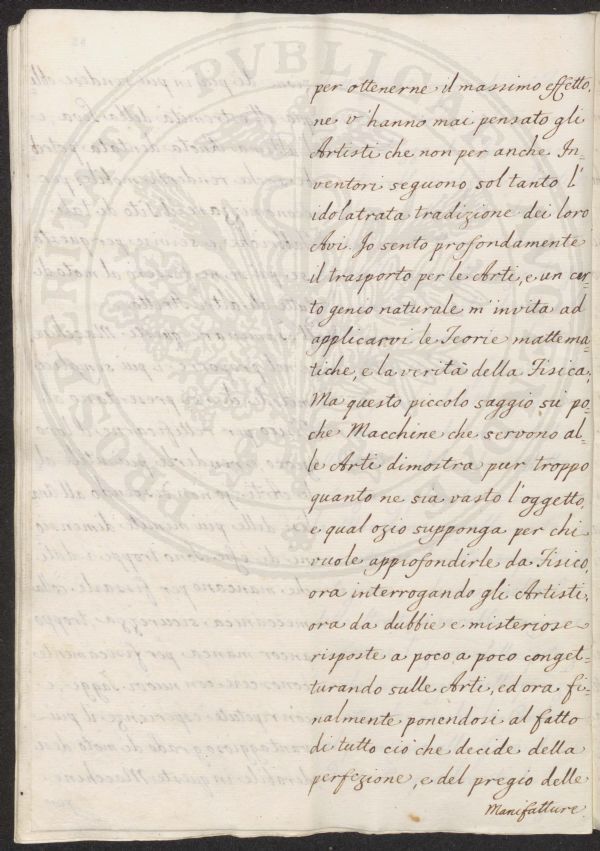 per ottenerne il massimo effetto,
ne v'hanno mai pensato gli
Artisti che non per anche In-
ventori seguono soltanto l'
idolatrata tradizione dei loro
Avi. Io sento profondamente
il trasporto per le Arti, e un cer-
to genio naturale m'invita ad
applicarvi le Teorie mattema-
tiche, e la verità della Fisica;
Ma questo piccolo saggio su po-
che Macchine che servono al-
le Arti dimostra pur troppo
quanto ne sia vasto l'oggetto,
e qual ozio supponga per chi
vuole approfondirle da Fisico,
ora interrogando gli Artisti,
ora da dubbie e misteriose
risposte a poco, a poco conget-
turando sulle Arti, ed ora fi-
nalmente ponendosi al fatto
di tutto ciò che decide della
perfezione, e del pregio delle
Manifatture